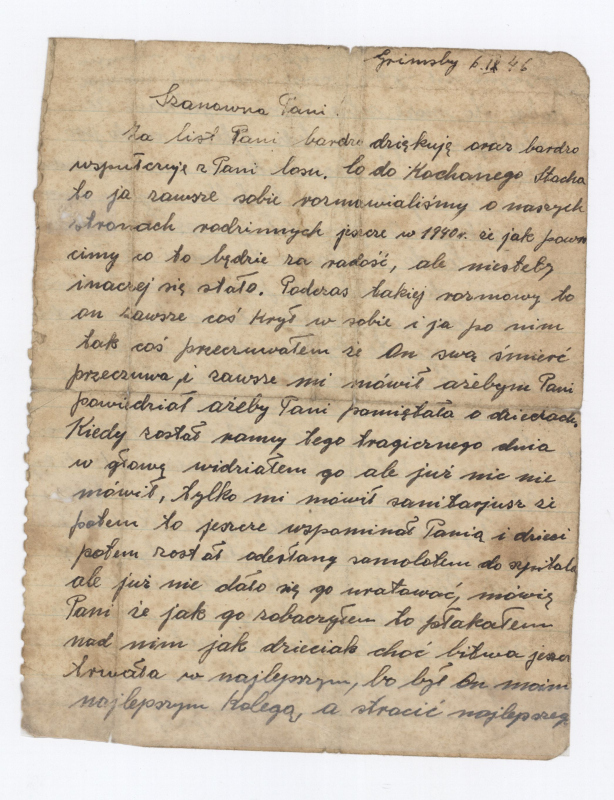 Grimsby 6.IX 46
Szanowna Pani!
Za list Pani bardzo dziękuję oraz bardzo
wspułczuję z Pani losu. Co do Kochanego Stacha
to ja zawsze sobie rozmowialiśmy o naszych
stronach rodzinnych jeszcze w 1940r. że jak powru
cimy co to będzie za radość, ale niestety
inaczej się stało. Podczas takiej rozmowy to
on zawsze coś krył w sobie i ja po nim
tak coś przeczuwałem że On swą śmierć
przeczuwa, i zawsze mi mówił ażebym Pani
powiedział ażeby Pani pamiętała o dzieciach.
Kiedy został ranny tego tragicznego dnia
w głowę widziałem go ale już nic nie
mówił, tylko mi mówił sanitarjusz że
potem to jeszcze wspominał Panią i dzieci
potem został odesłany samolotem do szpitala
ale już nie dało się go uratować, mówię
Pani że jak go zobaczyłem to płakałem
nad nim jak dzieciak choć bitwa jeszcze
trwała w najlepszym, bo był On moim
najlepszym Kolegą, a stracić najlepszego